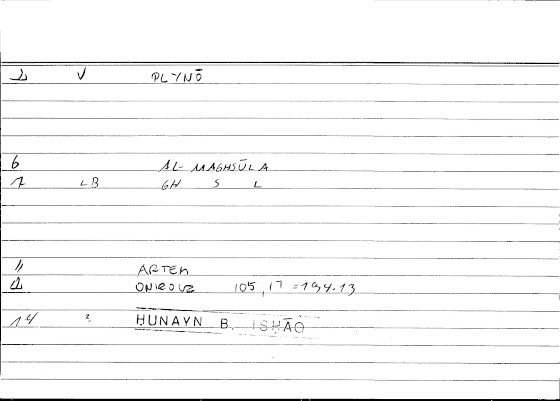 V PLYNŌ
6 AL-MAGHSŪLA
1 LB GH S L
11 ARTEM
ONIROCR 105,17 = 194.13
14 2. HUNAYN B. ISHĀQ